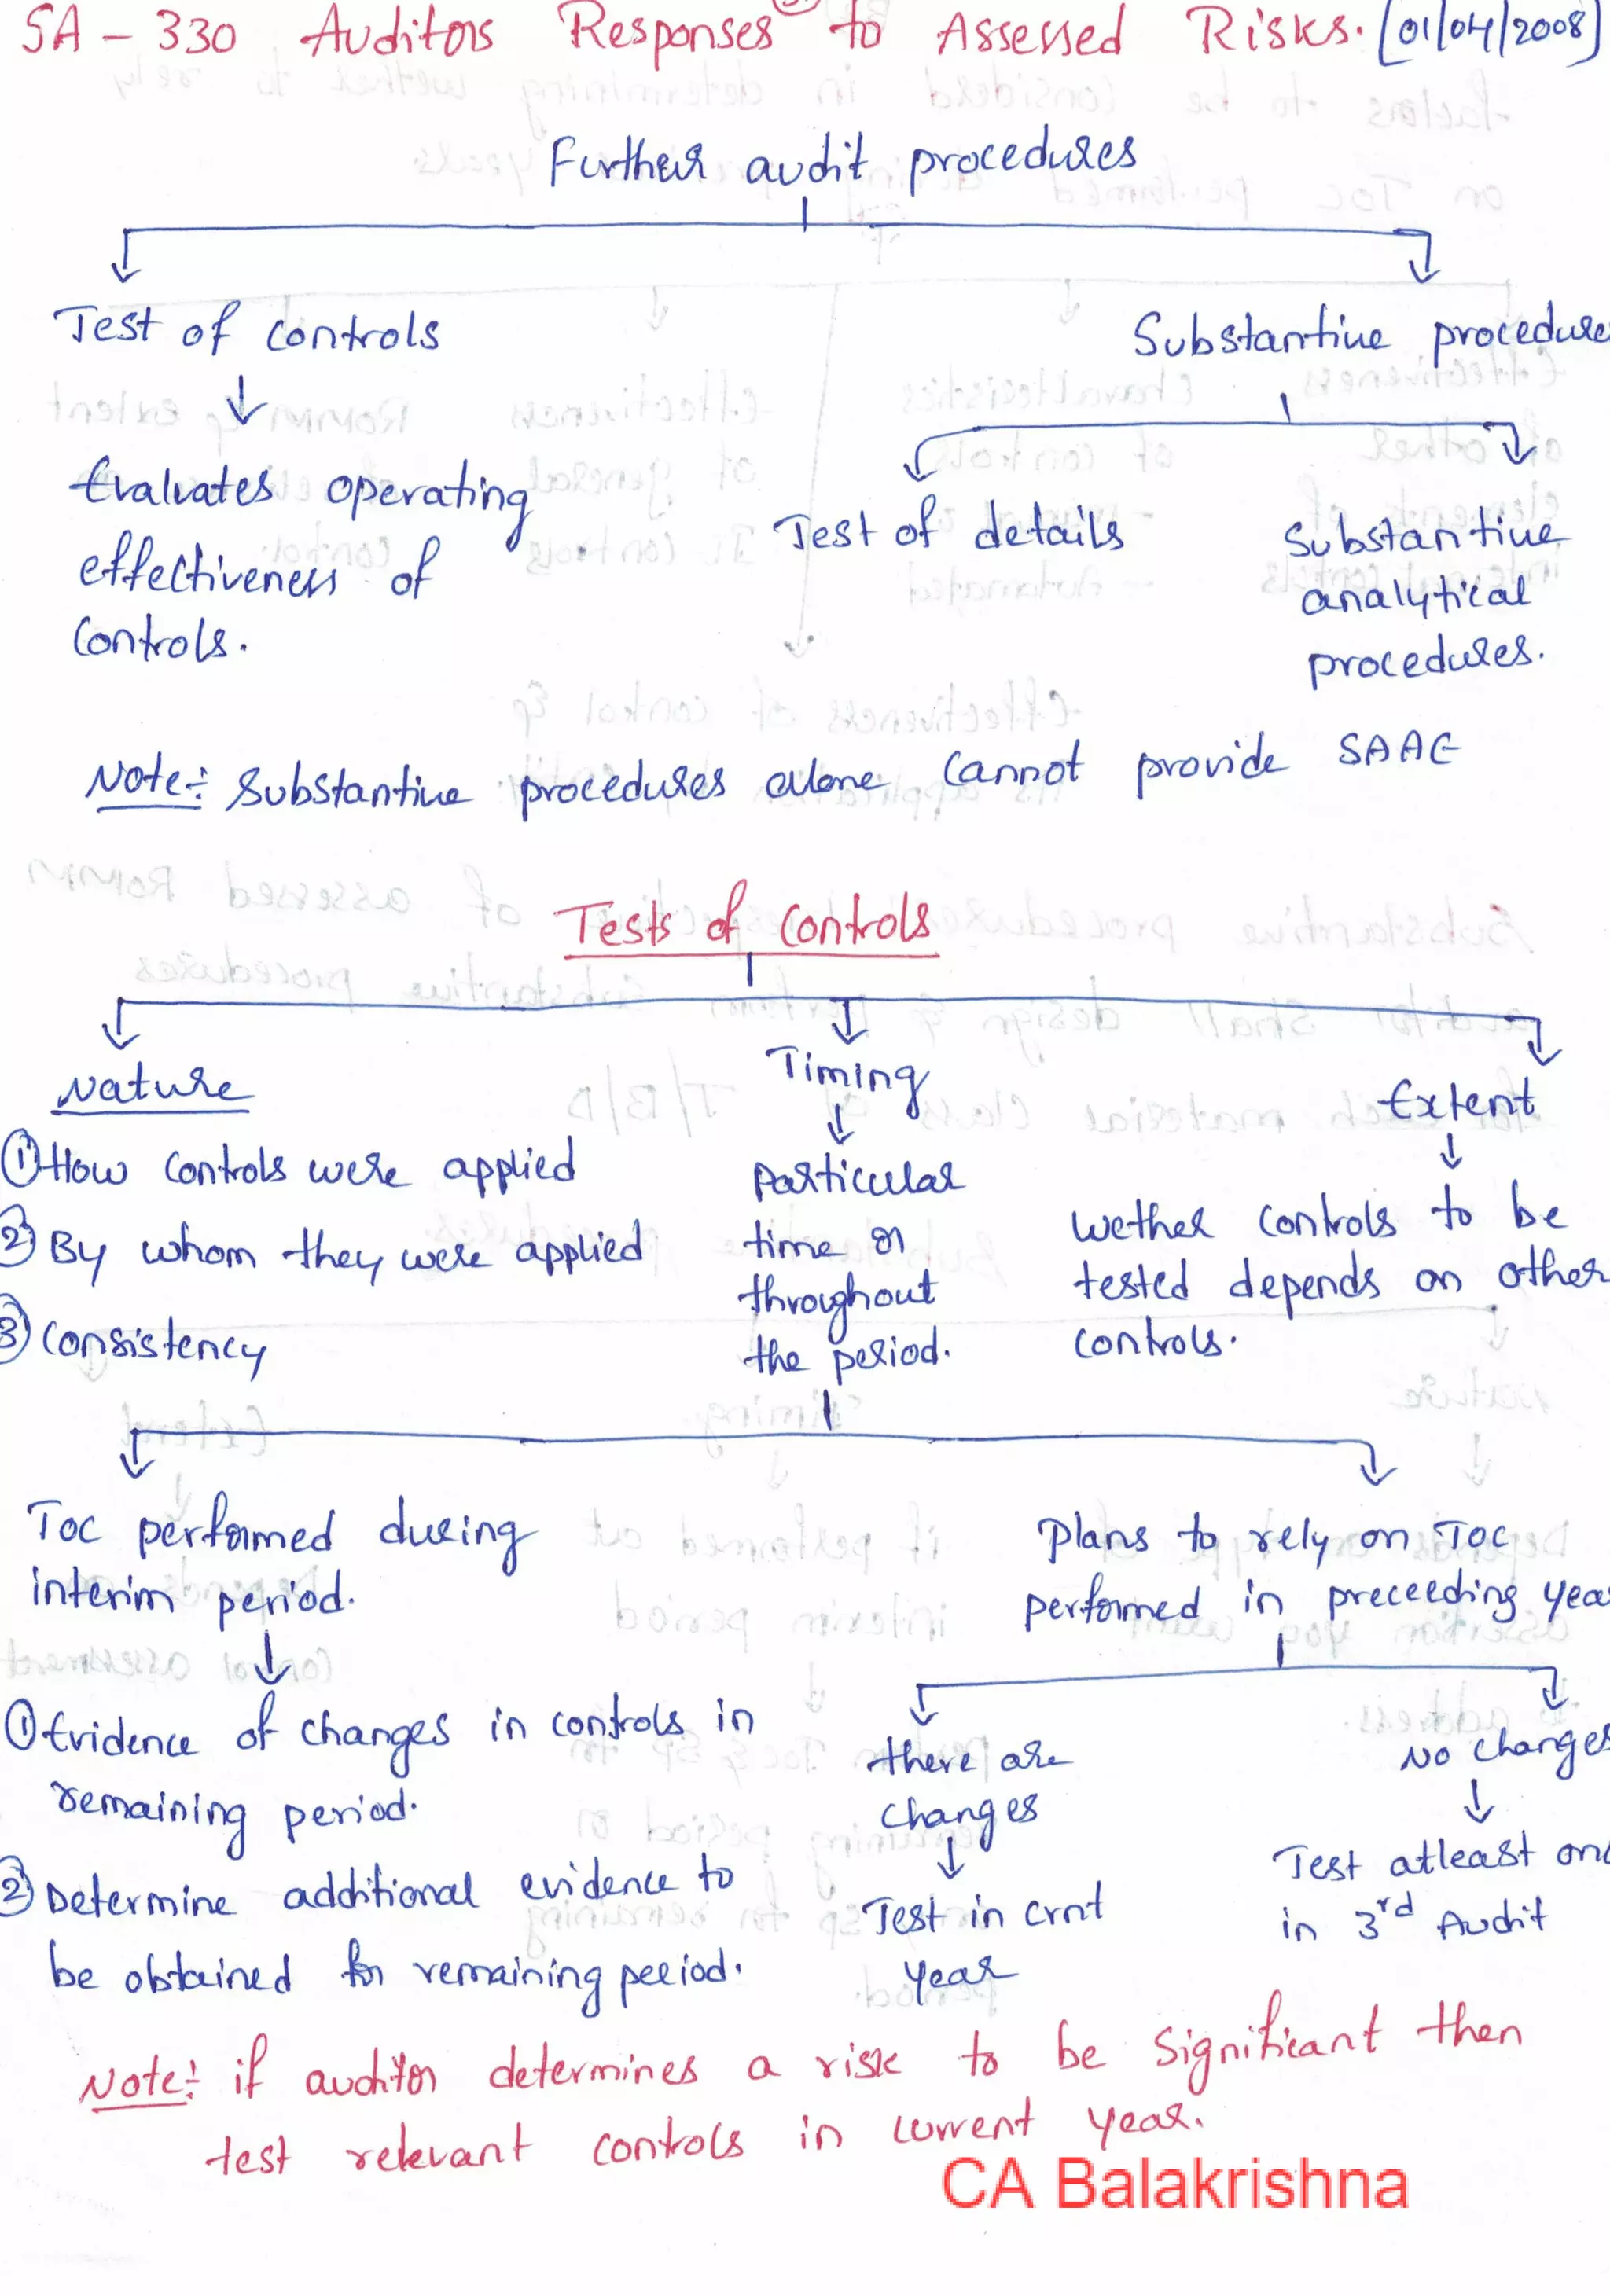 SA - 330 Auditors Responses to Assessed Risks. [01/04/2008]
Further audit procedures
Test of controls
Substantive procedure
Evaluates operating
effectiveness of
controls.
Test of details
Substantive
analytical
procedures.
Note:- Substantive procedures alone cannot provide SAAE
Tests of controls
Nature
Timing
Extent
① How controls were applied
② By whom they were applied
③ Consistency
Particular
time or
throughout
the period.
wether controls to be
tested depends on other
controls.
Toc performed during
interim period.
Plans to rely on Toc
performed in preceeding yea
① Evidence of changes in controls in
remaining period.
② Determine additional evidence to
be obtained for remaining period.
there are
changes
Test in crnt
year
No changes
Test atleast on
in 3rd Audit
Note:- if auditor determines a risk to be significant then
test relevant controls in current year.
CA Balakrishna